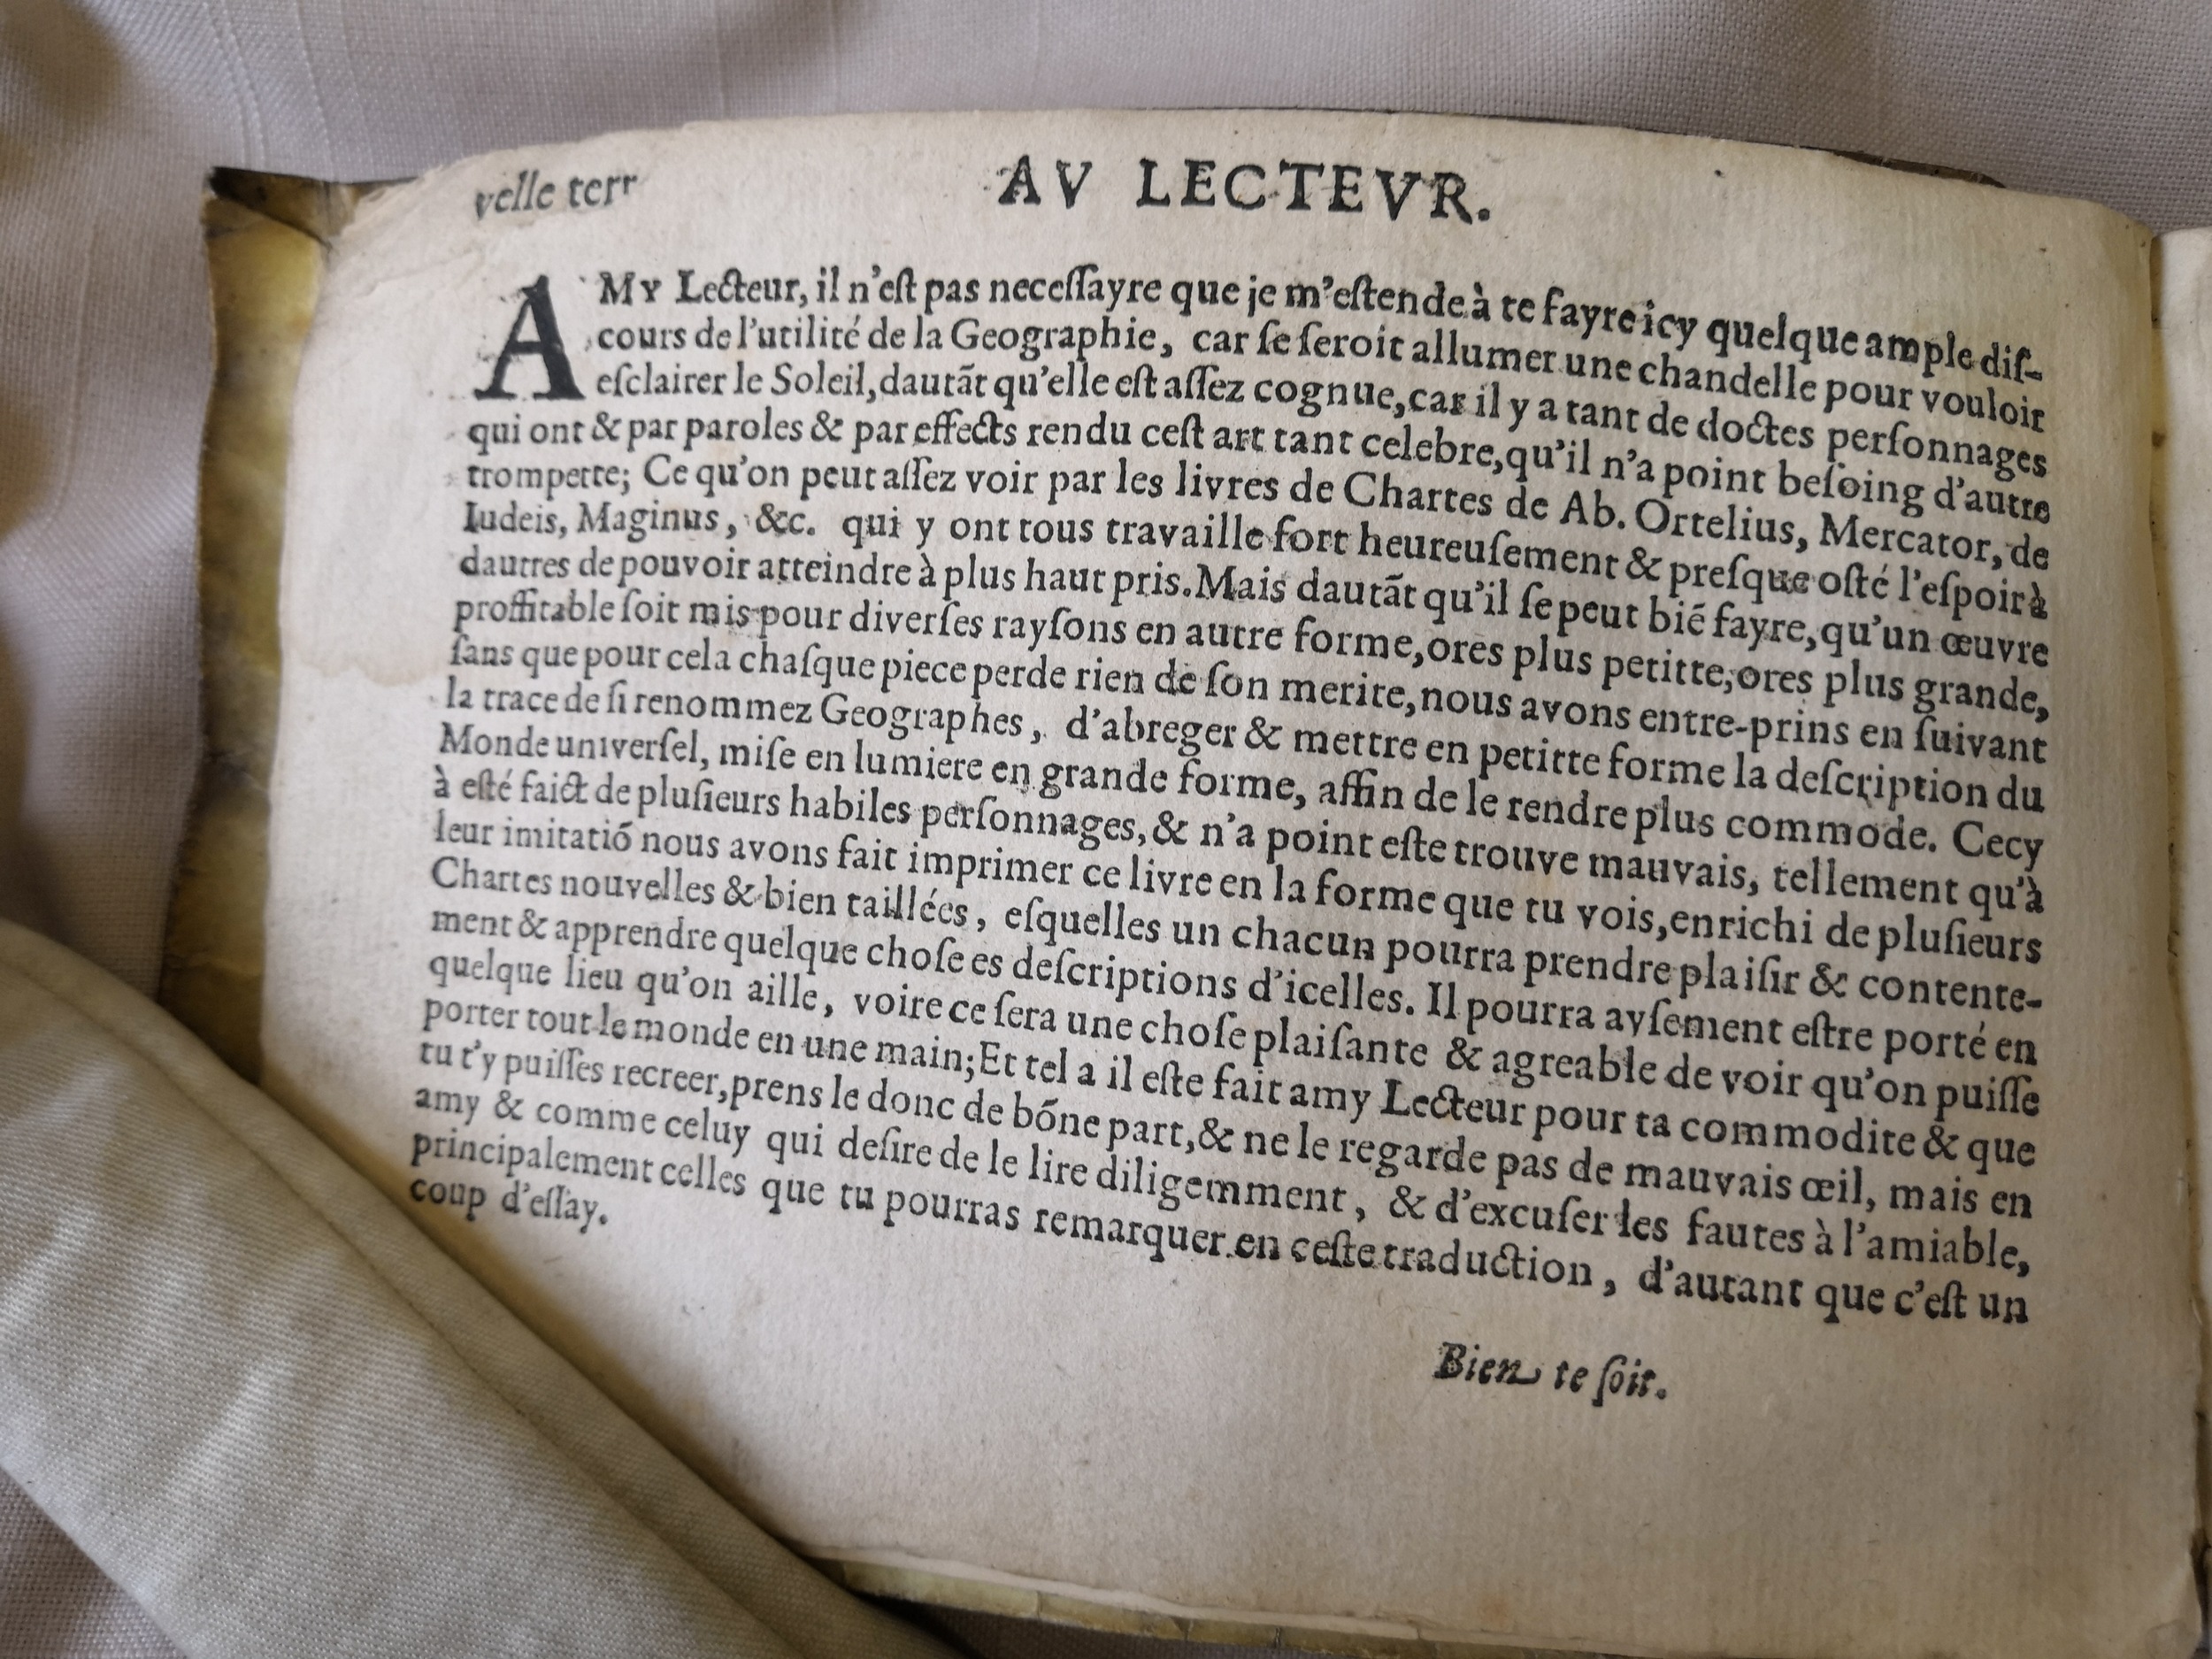 velle terr
AV LECTEVR.
AMY Lecteur, il n'eſt pas neceſſayre que je m'eſtende à te fayre icy quelque ample diſ-
cours de l'utilité de la Geographie, car ſe ſeroit allumer une chandelle pour vouloir
eſclairer le Soleil, dautãt qu'elle eſt aſſez cognue, car il y a tant de doctes perſonnages
qui ont & par paroles & par effects rendu ceſt art tant celebre, qu'il n'a point beſoing d'autre
trompette; Ce qu'on peut aſſez voir par les livres de Chartes de Ab. Ortelius, Mercator, de
Iudeis, Maginus, &c. qui y ont tous travaille fort heureuſement & preſque oſté l'eſpoir à
dautres de pouvoir atteindre à plus haut pris. Mais dautãt qu'il ſe peut bié fayre, qu'un œuvre
proffitable ſoit mis pour diverſes rayſons en autre forme, ores plus petitte, ores plus grande,
ſans que pour cela chaſque piece perde rien de ſon merite, nous avons entre-prins en ſuivant
la trace de ſi renommez Geographes, d'abreger & mettre en petitte forme la deſcription du
Monde univerſel, miſe en lumiere en grande forme, affin de le rendre plus commode. Cecy
à eſté faict de pluſieurs habiles perſonnages, & n'a point eſte trouve mauvais, tellement qu'à
leur imitatiõ nous avons fait imprimer ce livre en la forme que tu vois, enrichi de pluſieurs
Chartes nouvelles & bien taillées, eſquelles un chacun pourra prendre plaiſir & contente-
ment & apprendre quelque choſe es deſcriptions d'icelles. Il pourra ayſement eſtre porté en
quelque lieu qu'on aille, voire ce ſera une choſe plaiſante & agreable de voir qu'on puiſſe
porter tout le monde en une main; Et tel a il eſte fait amy Lecteur pour ta commodite & que
tu t'y puiſſes recreer, prens le donc de bõne part, & ne le regarde pas de mauvais œil, mais en
amy & comme celuy qui deſire de le lire diligemment, & d'excuſer les fautes à l'amiable,
principalement celles que tu pourras remarquer en ceſte traduction, d'autant que c'eſt un
coup d'eſſay.
Bien te ſoit.